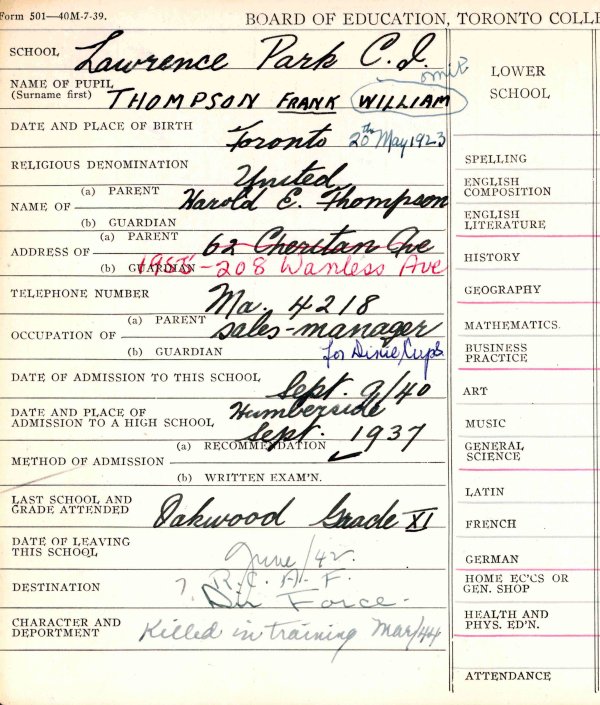 Form 501—40M-7-39.
BOARD OF EDUCATION, TORONTO COLLE
SCHOOL Lawrence Park C.I.
omit
NAME OF PUPIL (Surname first) THOMPSON FRANK WILLIAM
DATE AND PLACE OF BIRTH Toronto 20th May 1923
RELIGIOUS DENOMINATION United
NAME OF (a) PARENT Harold E. Thompson
(b) GUARDIAN
ADDRESS OF (a) PARENT 62 Cheritan Ave
(b) GUARDIAN 208 Wanless Ave
TELEPHONE NUMBER Ma. 4218
OCCUPATION OF (a) PARENT sales-manager
(b) GUARDIAN for Dixie Cups
DATE OF ADMISSION TO THIS SCHOOL Sept. 9/40
DATE AND PLACE OF ADMISSION TO A HIGH SCHOOL Humberside
Sept. 1937
METHOD OF ADMISSION (a) RECOMMENDATION ✓
(b) WRITTEN EXAM'N.
LAST SCHOOL AND GRADE ATTENDED Oakwood Grade XI
DATE OF LEAVING THIS SCHOOL June/42.
DESTINATION ?. R.C.A.F.
Air Force.
CHARACTER AND DEPORTMENT Killed in training Mar/44
LOWER
SCHOOL
SPELLING
ENGLISH
COMPOSITION
ENGLISH
LITERATURE
HISTORY
GEOGRAPHY
MATHEMATICS.
BUSINESS
PRACTICE
ART
MUSIC
GENERAL
SCIENCE
LATIN
FRENCH
GERMAN
HOME EC'CS OR
GEN. SHOP
HEALTH AND
PHYS. ED'N.
ATTENDANCE